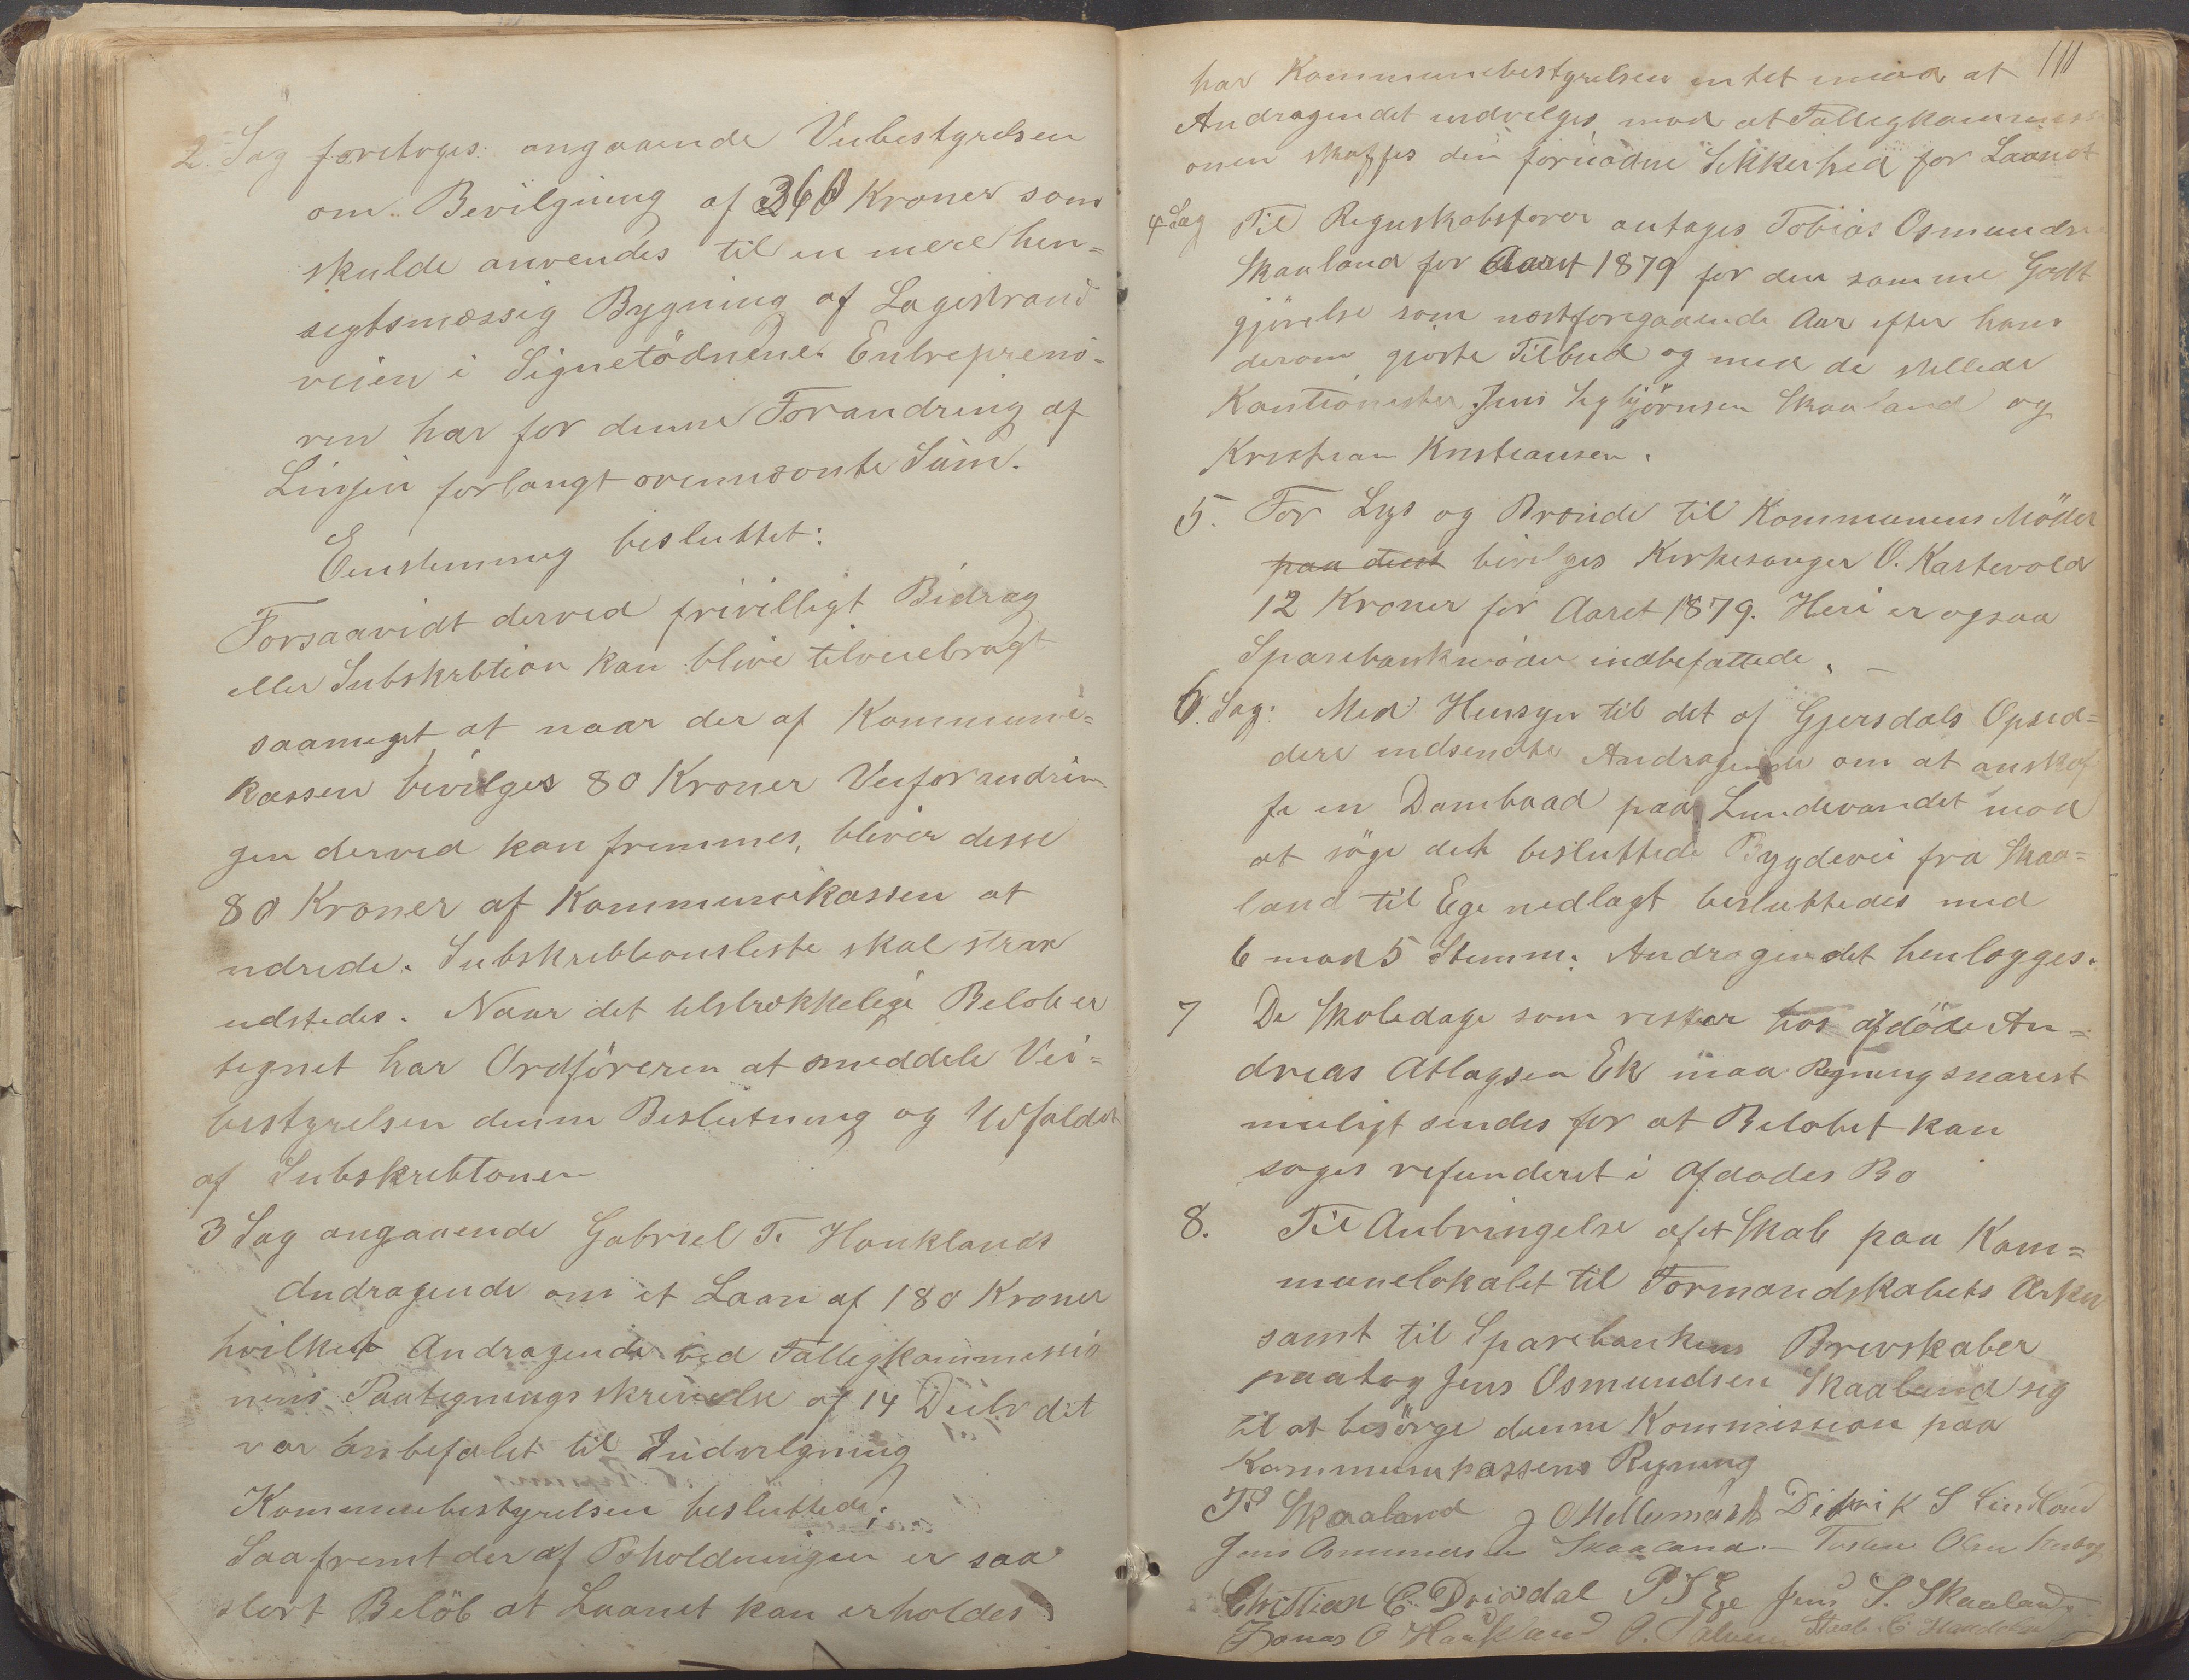 2. Sag foretoges angaaende Veibestyrelsen
om Bevilgning af 360 Kroner som
skulde anvendes til en mere hen=
sigtsmæssig Bygning af Lagestrand
veien i Signetödnene. Entreprenö-
ren har for denne Forandring af
Linjen forlangt ovennævnte Sum.
Eenstemmig besluttet:
Forsaavidt derved frivilligt Bidrag
eller Subskribtion kan blive tilveiebragt
saameget at naar der af Kommune=
kassen bevilges 80 Kroner Veiforandrin
gen derved kan fremmes, bliver disse
80 Kroner af Kommunekassen at
udrede. Subskribtionsliste skal strax
udstedes. Naar det tilstrækkelige Beløb er
tegnet har Ordföreren at meddele Vei=
bestyrelsen denne Beslutning og Udfaldet
af Subskribtionen
3 Sag angaaende Gabriel T. Hauklands
Andragende om et Laan af 180 Kroner
hvilket Andragende ved Fattigkommissio
nens Paategningsskrivelse af 14 Decbr det
var anbefalet til Indvilgning
Kommunebestyrelsen besluttede:
Saafremt der af Beholdningen er saa
stort Belöb at Laanet kan erholdes
111
har Kommunebestyrelsen intet imod at
Andragendet indvilges, mod at Fattigkommissi
onen skaffes den fornödne Sikkerhed for Laanet
4 Sag Til Regnskabsfører antages Tobias Osmundsen
Skaaland for Aaret 1879 for den samme Godt
gjörelse som næstforegaaende Aar efter hans
derom gjorte Tilbud og med de stillede
Kautionister Jens Asbjörnsen Skaaland og
Kristian Kristiansen.
5. For Lys og Brænde til Kommunens Möder
paa dens bevilges Kirkesanger O. Kastevold
12 Kroner for Aaret 1879. Heri er ogsaa
Sparebankmöder indbefattede. –
6. Sag. Med Hensyn til det af Gjersdals Opsid=
dere indsendte Andragende om at anskaf
fe en Dambaad paa Lundevandet mod
at söge den besluttede Bygdevei fra Skaa=
land til Ege nedlagt besluttedes med
6 mod 5 Stemm: Andragendet henlægges.
7 De Skoledage som rester hos afdöde An=
dreas Atlagsen Ek maa Regning snarest
muligt sendes for at Beløbet kan
søges refunderet i Afdødes Bo
8. Til Anbringelse af et Skab paa Kom=
munelokalet til Formandskabets Arkiv
samt til Sparebankens Brevskaber
paatog Jens Osmundsen Skaaland sig
til at besörge denne Kommission paa
Kommunekassens Regning
T. Skaaland J Mellemstrand Didrik S Lindland
Jens Osmundsen Skaaland. – Tosten Olsen
Christian C. Driosdal P S Ege Jens S. Skaaland
Jonas O Haukland O.